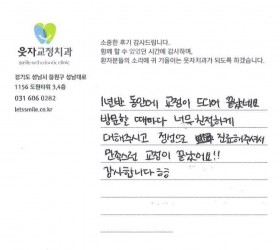 웃자교정치과
smile orthodontic clinic
경기도 성남시 중원구 성남대로
1156 도원타워 3,4층
031 606 0282
letssmile.co.kr
소중한 후기 감사드립니다.
함께 할 수 있었던 시간에 감사하며,
환자분들의 소리에 귀 기울이는 웃자치과가 되도록 하겠습니다.
1년반 동안에 교정이 드디어 끝났네요
방문할 때마다 너무 친절하게
대해주시고 정성으로 진료해주셔서
만족스런 교정이 끝났어요!!
감사합니다 ㅎㅎ